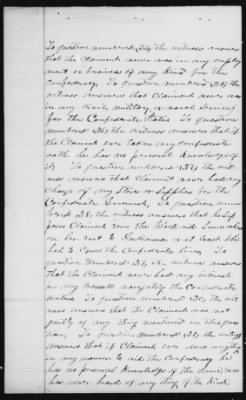 To question numbered 24, the witness answers
that the Claimant never was in any employ
ment or business of any kind for the
Confederacy. To question numbered 25, the
witness answers that Claimant never was
in any civil, military, or naval Service
for the Confederate States. To question
numbered 26, the witness answers that if
the Claimant ever taken any confederate
oath he has no personal knowledge of
it. To question numbered 27, the wit
ness answers that Claimant never had any
charge of any Stores or Supplies for the
Confederate Government. To question num
bered 28, the witness answers that he
Claimant the blockade
on her to or at least
had to cross the Confederate lines. To
question numbered 29, the witness answers
that the Claimant never had any interest
in any vessell navigating the Confederate
waters. To question numbered 30, the wit
ness answers that the Claimant was not
guilty of any thing mentioned in this ques
tion. To question numbered 31, the witness
answers that if Claimant ever done anything
in any manner to aid the Confederacy he
has no personal knowledge of the same, nor
has never heard of any thing of the kind